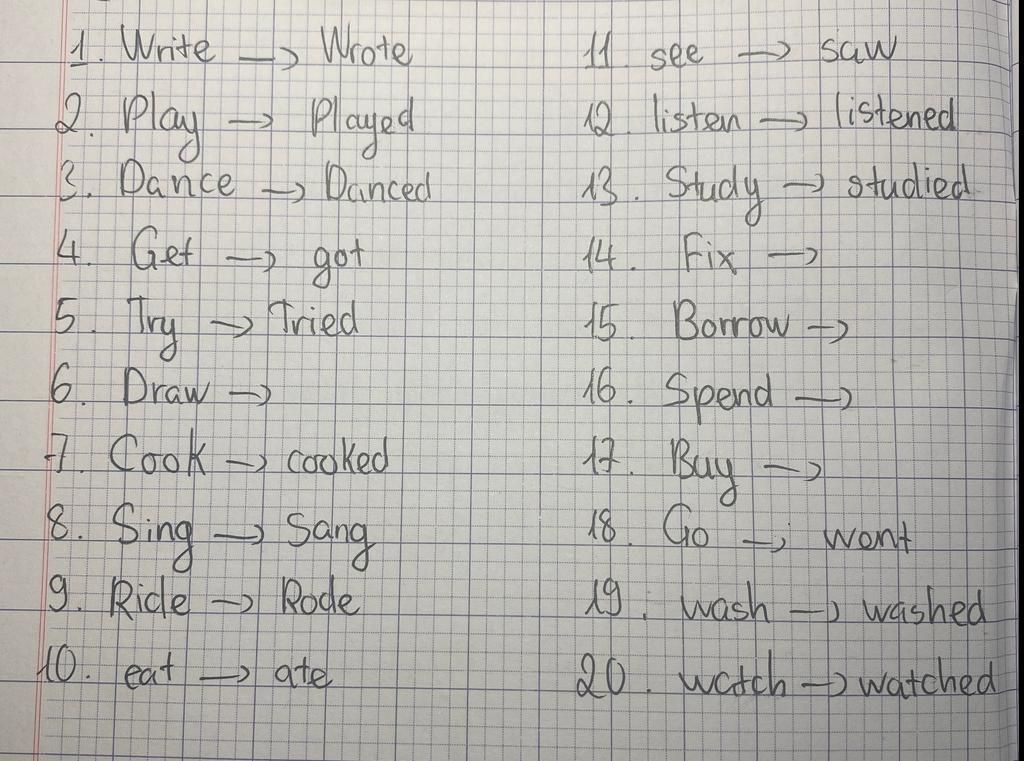 1. Write → Wrote
2. Play → Played
3. Dance → Danced
4. Get → got
5. Try → Tried
6. Draw →
7. Cook → cooked
8. Sing → Sang
9. Ride → Rode
10. eat → ate
11 see → saw
12. listen → listened
13. Study → studied
14. Fix →
15. Borrow →
16. Spend →
17. Buy →
18. Go → went
19. wash → washed
20. watch → watched